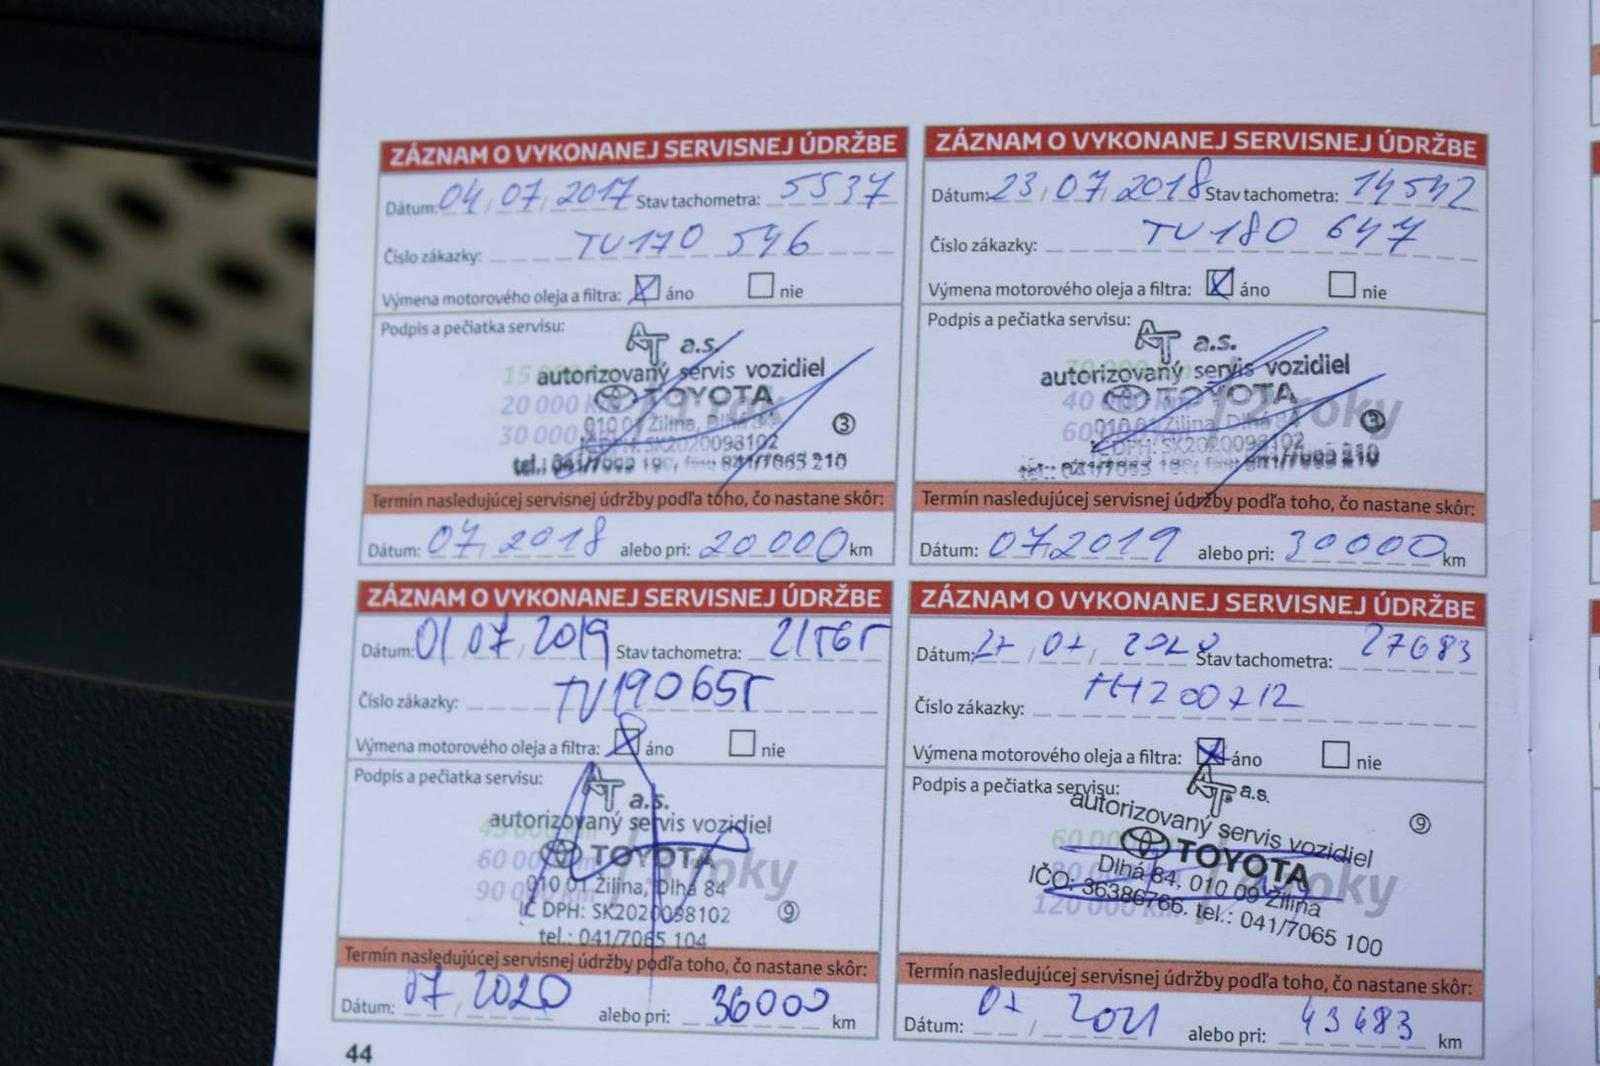 ZÁZNAM O VYKONANEJ SERVISNEJ ÚDRŽBE
Dátum: 04/07/2017 Stav tachometra: 5537
Číslo zákazky: TU170 546
Výmena motorového oleja a filtra: áno nie
Podpis a pečiatka servisu:
AT a.s.
autorizovaný servis vozidiel
TOYOTA
20 000
30 000
010 01 Žilina, Dlhá 84
SK2020098102
3
Termín nasledujúcej servisnej údržby podľa toho, čo nastane skôr:
Dátum: 07/2018 alebo pri: 20 000 km
ZÁZNAM O VYKONANEJ SERVISNEJ ÚDRŽBE
Dátum: 23/07/2018 Stav tachometra: 14542
Číslo zákazky: TU180 647
Výmena motorového oleja a filtra: áno nie
Podpis a pečiatka servisu:
AT a.s.
autorizovaný servis vozidiel
TOYOTA
roky
3
Termín nasledujúcej servisnej údržby podľa toho, čo nastane skôr:
Dátum: 07/2019 alebo pri: 30000 km
ZÁZNAM O VYKONANEJ SERVISNEJ ÚDRŽBE
Dátum: 01/07/2019 Stav tachometra: 21565
Číslo zákazky: TU190655
Výmena motorového oleja a filtra: áno nie
Podpis a pečiatka servisu:
AT a.s.
autorizovaný servis vozidiel
TOYOTA
roky
010 01 Žilina, Dlhá 84
IČ DPH: SK2020098102
9
tel.: 041/7065 104
Termín nasledujúcej servisnej údržby podľa toho, čo nastane skôr:
Dátum: 07/2020 alebo pri: 36000 km
ZÁZNAM O VYKONANEJ SERVISNEJ ÚDRŽBE
Dátum: 27/07/2020 Stav tachometra: 27683
Číslo zákazky:
Výmena motorového oleja a filtra: áno nie
Podpis a pečiatka servisu:
AT a.s.
9
autorizovaný servis vozidiel
TOYOTA
roky
Dlhá 84, 010 09 Žilina
IČO: 36386766, tel.: 041/7065 100
120 000 km
Termín nasledujúcej servisnej údržby podľa toho, čo nastane skôr:
Dátum: 07/2021 alebo pri: 43683 km
44